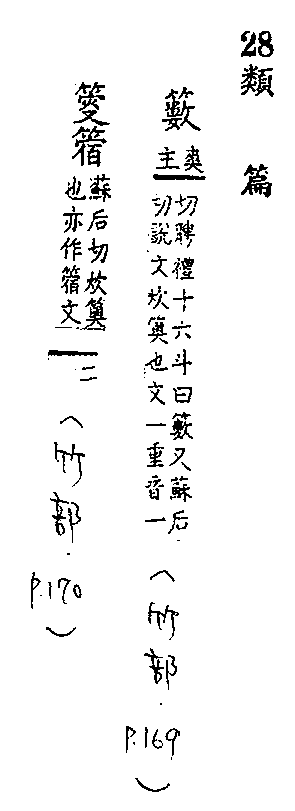 28類篇
籔
爽
主
切聘禮十六斗曰籔又蘇后
切說文炊䉛也文一重音一
(竹部.P.169)
蘇后切炊䉛
也亦作文
二
(竹部.P.170)